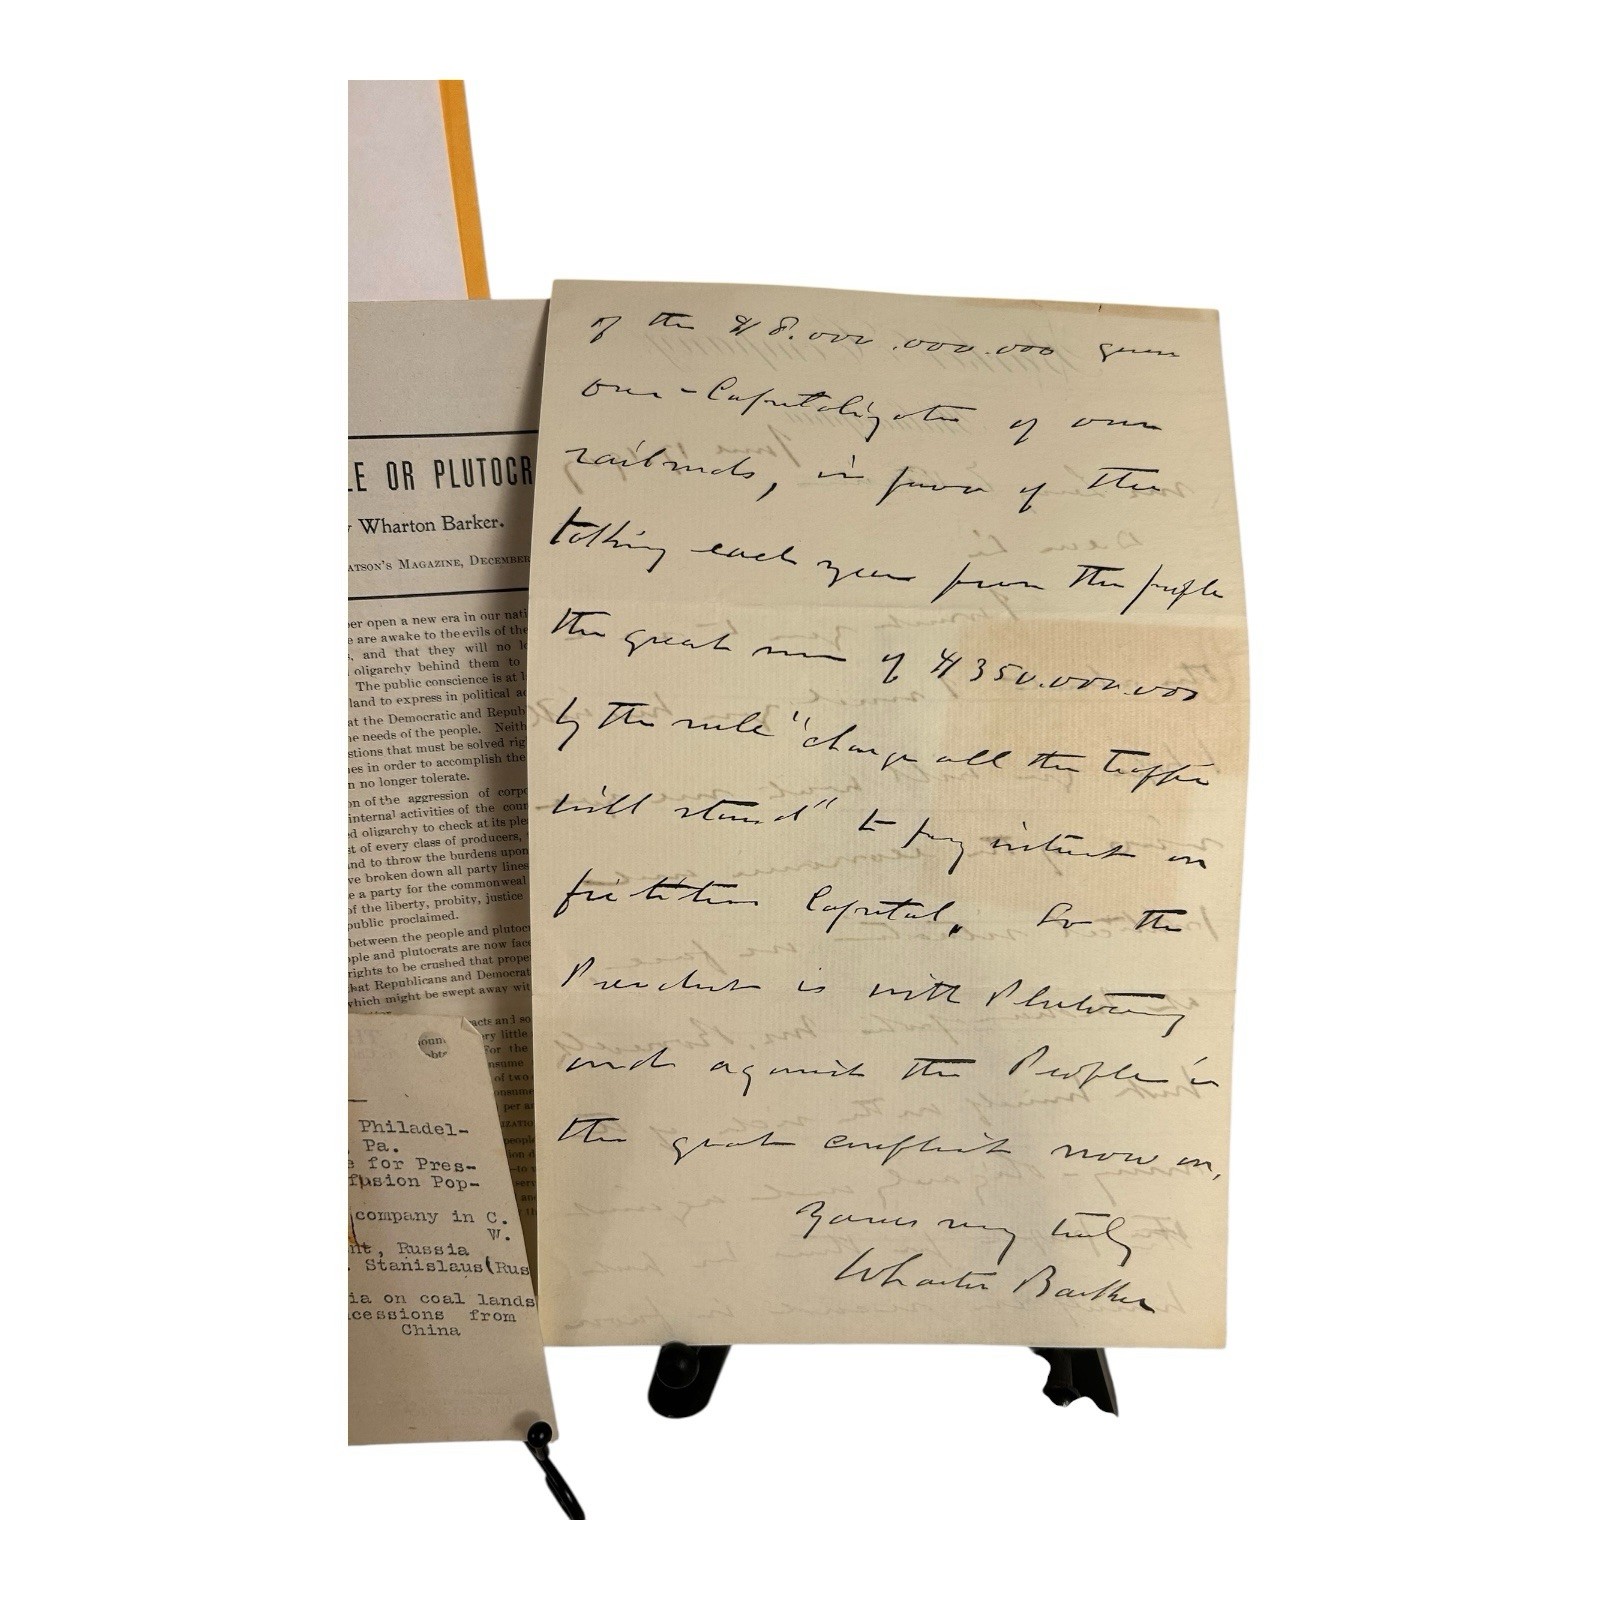 LE OR PLUTOCR
Wharton Barker.
ATSON'S MAGAZINE, DECEMBER
per open a new era in our nati
e are awake to the evils of the
, and that they will no l
oligarchy behind them to
The public conscience is at l
land to express in political a
at the Democratic and Repub
he needs of the people. Neith
stions that must be solved rig
es in order to accomplish the
n no longer tolerate.
on of the aggression of corp
internal activities of the coun
d oligarchy to check at its ple
st of every class of producers,
nd to throw the burdens upon
ve broken down all party lines
e a party for the commonweal
of the liberty, probity, justice
public proclaimed.
between the people and plutoc
ple and plutocrats are now face
rights to be crushed that prope
hat Republicans and Democrat
which might be swept away wi
acts and so
ery little
For the
nsume
of two
onsume
per a
IZATION
people
Philadel-
Pa.
e for Pres-
fusion Pop-
company in C.
W.
nt, Russia
. Stanislaus(Rus
ia on coal lands
cessions from
China
of the $8.000.000.000 given
over-Capitalization of our
railroads, in favor of the
taking each year from the people
the great sum of $350.000.000
by the rule "charge all the traffic
will stand" to pay interest on
fictitious Capital, So the
President is with Plutocracy
and against the People in
the great conflict now on.
Yours very truly
Wharton Barker